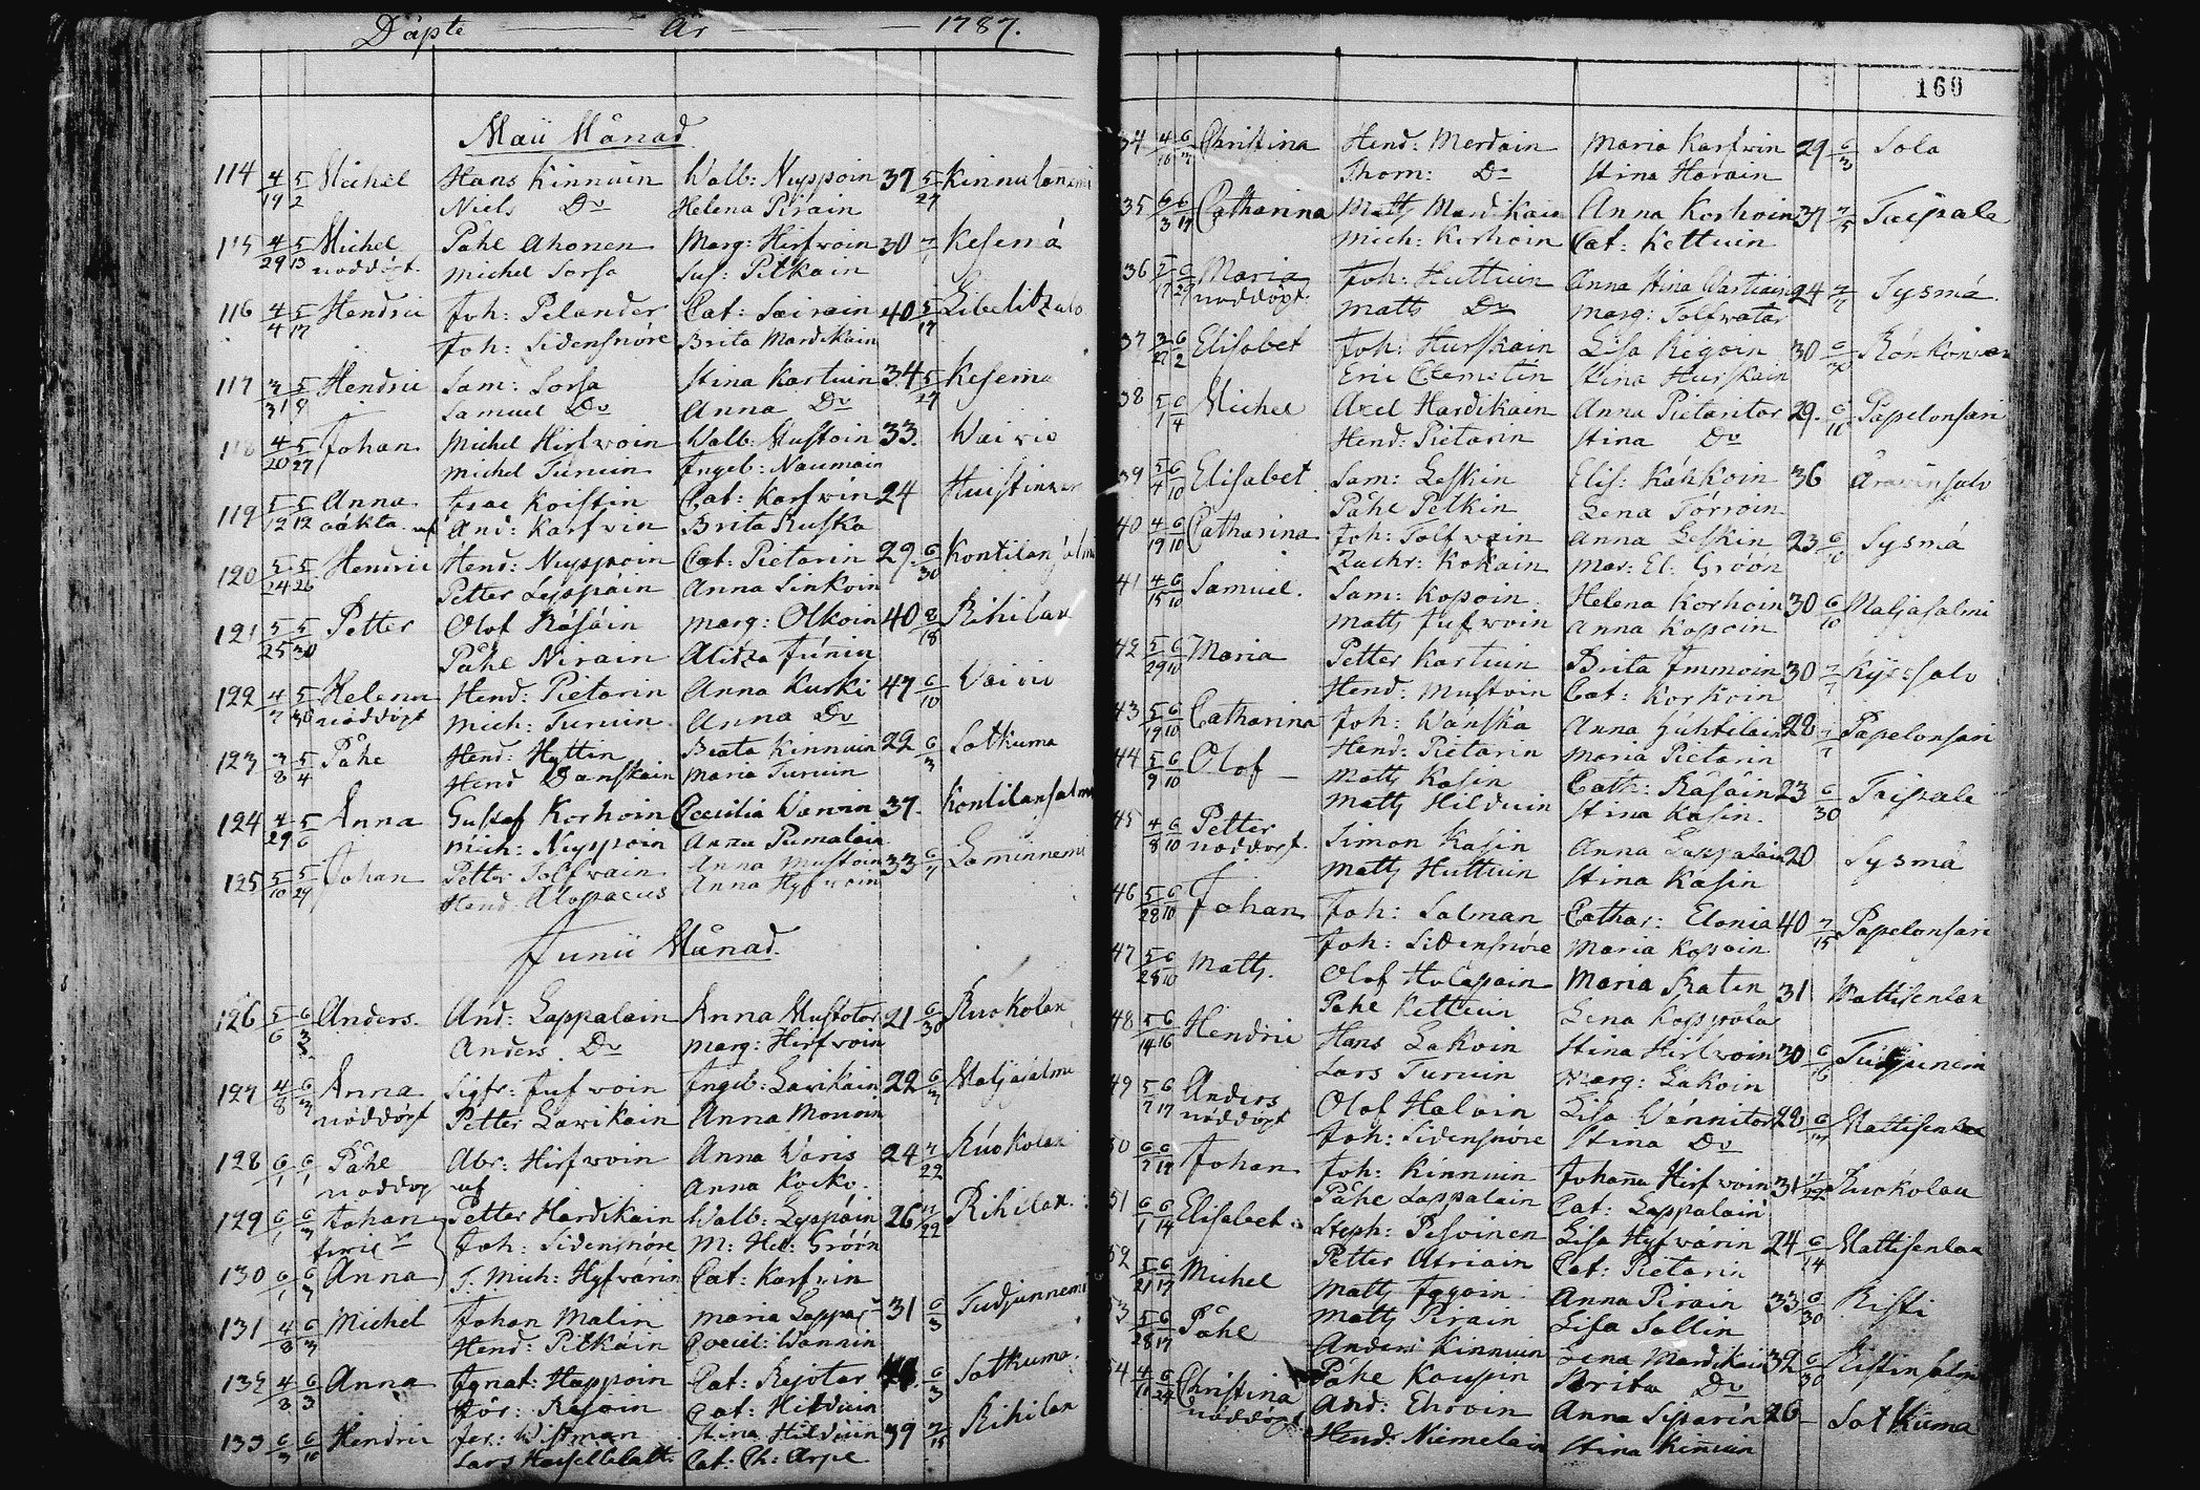 Döpte år 1787.
Maii Månad.
114 4/19 5/2 Michel Hans Kinnuin Walb: Nyppoin 37 5/27 Kinnulanemi
Niels Do Helena Pirain
115 4/29 5/13 Michel Påhe Ahonen Marg: Hirfwoin 30 7/1 Kesemä
nöddöpt. Michel Sorsa Sus: Pitkain
116 4/4 5/17 Hendric Joh: Pelander Cat: Sairain 40 5/17 Libelitzalo
Joh: Sidensnöre Brita Mardikain
117 3/31 5/9 Hendric Sam: Sorsa Stina Kartuin 34 5/27 Kesemä
Samuel Do Anna Do
118 4/20 5/27 Johan Michel Hirfwoin Walb: Mustoin 33. Wairio
Michel Turuin Ingeb: Naumain
119 5/12 5/12 Anna Isac Koistin Cat: Karfwin 24
oäkta And: Karfwin Brita Ruska
120 5/24 5/26 Hendric Hend: Nyppoin Cat: Pietarin 29. 6/30 Kontilansalmi
Petter Lyppäin Anna Sinkoin
121 5/25 5/30 Petter Olof Räsäin Marg: Olkoin 40 8/18 Rihilax
Påhe Nirain
122 4/7 5/30 Helena Hend: Pietarin Anna Kurki 47 6/10 Wairio
nöddöpt Mich: Turuin Anna Do
123 3/8 5/4 Påhe Hend: Hyttin Beata Kinnuin 22 6/3 Sotkuma
Hend Danskain Maria Turuin
124 4/29 5/6 Anna Gustaf Korhoin Cecilia Waroin 37. Kontilansalmi
Mich: Nyppoin Anna Pumalain
125 5/10 5/27 Johan Petter Tolfwain Anna Mustoin 33 6/7 Laminnemi
Hend: Alopaeus Anna Hyfwoin
Junii Månad.
126 5/6 6/3 Anders. And: Lappalain Anna Mustotar 21 6/30 Ruokolax
Anders Do Marg: Hirfwoin
127 4/8 6/3 Anna Sigfr: Jufwoin Ingeb: Lavikain 22 6/3 Maljasalmi
nöddöpt Petter Lavikain Anna Monoin
128 6/1 6/1 Påhe Abr: Hirfwoin Anna Wäris 24 7/22 Ruokolax
nöddöp Anna Kocko.
129 6/1 6/3 Johan Petter Hardikain Walb: Lyppäin 26 7/22 Rihilax.
Joh: Sidensnöre M: Hel: Gröön
130 6/1 6/3 Anna Mich: Hyfvärin Cat: Karfvin
131 4/8 6/3 Michel Johan Malin Maria Lappa 31 6/3 Tudjunnemi
Hend: Pitkäin Coecil: Wannin
132 4/8 6/3 Anna Ignat: Happoin Cat: Rejotar 6/3 Sotkuma.
Jör: Rejoin Cat: Hilduin
133 6/3 6/10 Hendric Jer: Wistman Stina Hilduin 39 7/15 Rihilax
Lars Hasselblatt. Cat: Ch: Arpe
160
34 4/16 6/3 Christina Hend: Merdain Maria Karfwin 29 6/3 Sola
Thom: Do Stina Harain
35 6/3 6/17 Catharina Matts Mardikain Anna Korhoin 37 7/15 Taipale
Mich: Korhoin Cat: Kettuin
36 6/27 Maria Joh: Huttuin Anna Stina Wartiain 24 7/7 Sysmä.
nöddöpt. Matts Do Marg: Tolfwatar
37 3/22 6/2 Elisabet Joh: Hurskain Lisa Regoin 30
Eric Clemetin Stina Hurskain
38 5/1 6/4 Michel Axel Hardikain Anna Pietaritar 29. 6/10 Papelonsari
Hend: Pietarin Stina Do
39 5/4 6/10 Elisabet Sam: Leskin Elis: Käkkoin 36
Påhe Petkin Lena Törroin
40 4/19 6/10 Catharina Joh: Tolfwain Anna Leskin 23 6/10 Sysmä
Zachr: Kokain Mar: El: Gröön
41 4/15 6/10 Samuel. Sam: Kopoin Helena Korhoin 30 6/10 Maljasalmi
Matts Jufwoin Anna Kopoin
42 5/29 6/10 Maria Petter Kartuin Brita Immoin 30 7/7
Hend: Mustoin Cat: Korhoin
43 5/19 6/10 Catharina Joh: Wänskä Anna Huhtelain 28 7/7 Papelonsari
Hend: Pietarin Maria Pietarin
44 5/9 6/10 Olof Matts Kasin Cath: Räsäin 23 6/30 Taipale
Matts Hilduin Stina Kasin.
45 4/8 6/10 Petter Simon Kasin Anna Lappalain 20 Sysmä
nöddöpt. Matts Huttuin Stina Kasin
46 5/28 6/10 Johan Joh: Salman Cathar: Elonia 40 7/15 Papelonsari
Joh: Sidensnöre Maria Kopoin
47 5/28 6/10 Matts. Olof Holapain Maria Ratin 31 Mattisenlax
Påhe Kettuin Lena Koppola
48 5/14 6/16 Hendric Hans Lakoin Stina Hirfwoin 30 6/16
Lars Turuin Marg: Lakoin
49 5/7 6/17 Anders Olof Haloin Lisa Wännitar 22 6/17 Mattisenlax
nöddöpt Joh: Sidensnöre Stina Do
50 6/7 6/17 Johan Joh: Kinnuin Johanna Hirfwoin 31 7/22 Ruokolax
Påhe Lappalain Cat: Lappalain
51 6/1 6/14 Elisabet Steph: Pesoinen Lisa Hyfvärin 24 6/14 Mattisenlax
Petter Atriain Cat: Pietarin
52 5/21 6/17 Michel Matts Jogoin Anna Pirain 33 6/30 Risti
Matts Pirain Lisa Sallin
53 5/28 6/17 Påhe Anders Kinnuin Lena Mardikain 32 6/30 Ristinsalmi
Påhe Kaupin Brita Do
54 4/11 6/24 Christina And: Ehroin Anna Siparin 26 Sotkuma
nöddöpt Hend: Niemelain Stina Kinnuin